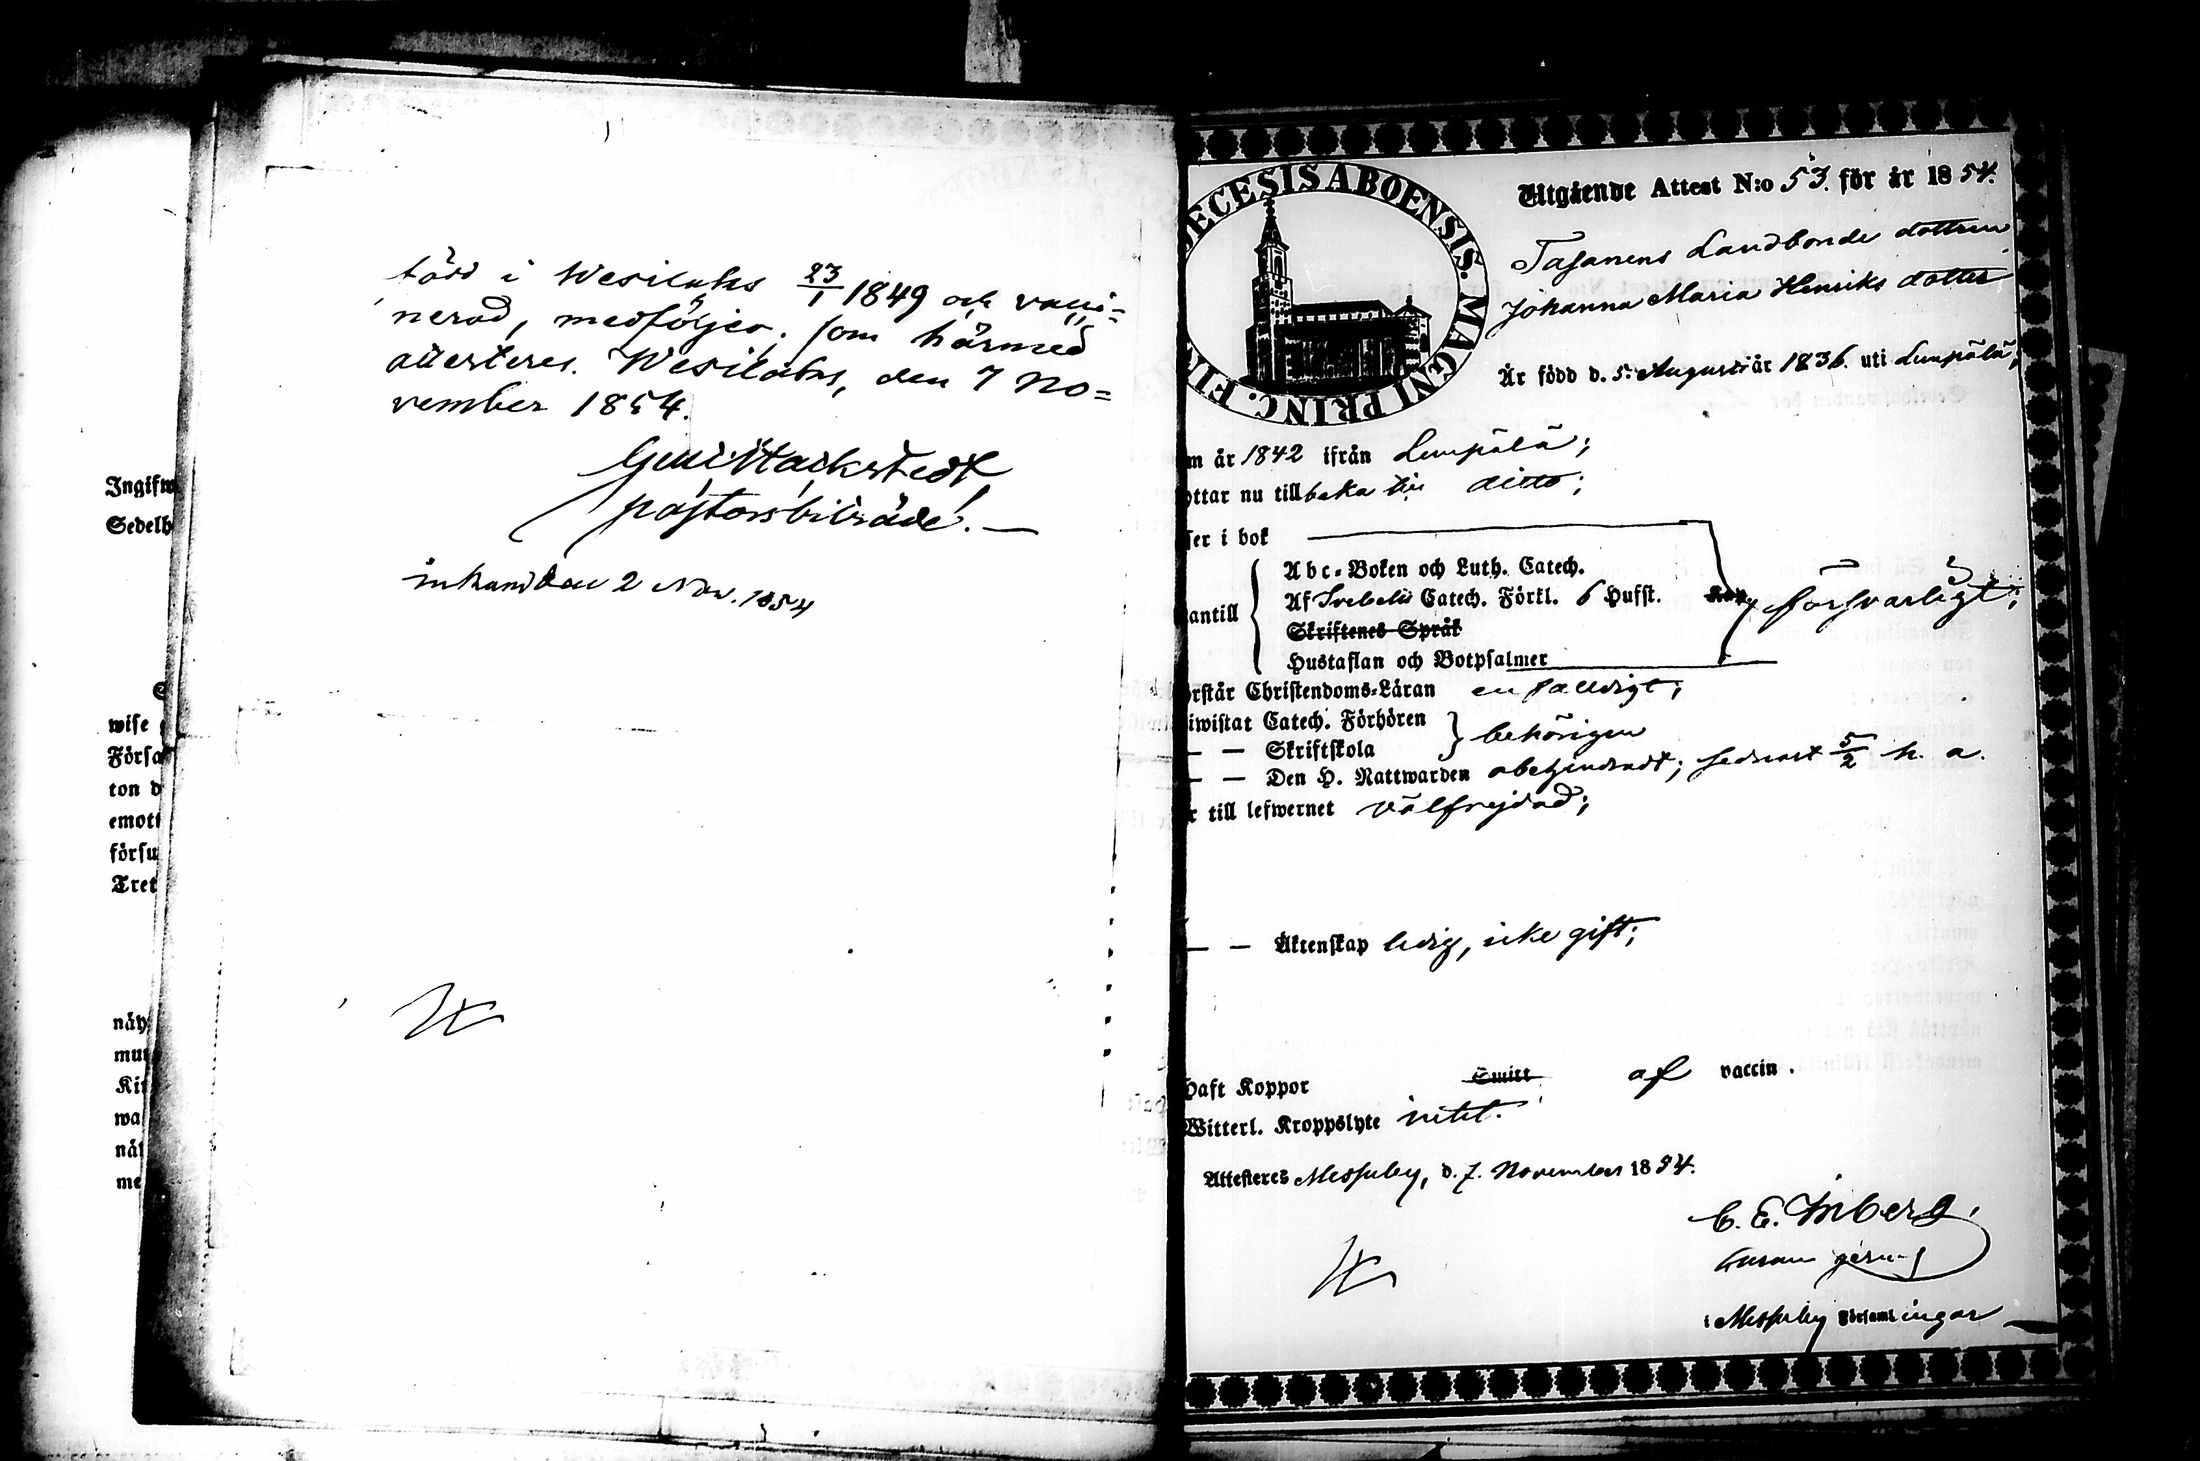 Ingifw
Sedelh
wise
Försa
ton d
emott
försu
Tret
näh
mu
Ki
wa
näh
me
född i Wesilaks 23/1 1849 och vacci=
nerad, medföljer; som härmed
attesteres. Wesilaks, den 7 No=
vember 1854.
Gust Hackstedt,
pastorsbiträde.
inkand den 2 Nov. 1854
DIECESIS ABOENSIS. MAGNI PRINC. FI
Utgående Attest N:o 53. för år 1854.
Landbonde dottren
Johanna Maria Henriks dotter
Är född d. 5. Augusti år 1836. uti Lempälä;
m år 1842 ifrån Lempälä;
ottar nu tillbaka till ditto;
ser i bok
Abc-Boken och Luth. Catech.
antill
Af Svebelii Catech. Förkl. 6 Hufst.
försvarligt;
Skriftenes Språk
Hustaflan och Botpsalmer
örstår Christendoms-Läran enfalldigt;
iwistat Catech. Förhören
behörigen
— — Skriftskola
— — Den H. Nattwarden obehindradt; sednast 5/2 h. a.
r till lefwernet välfrejdad;
— — Äktenskap ledig, icke gift;
haft Koppor Smitt af vaccin.
Witterl. Kroppslyte intet.
Attesteres Messuby, d. 7. November 1854.
C. E. Inberg,
i Messuby Församlingar